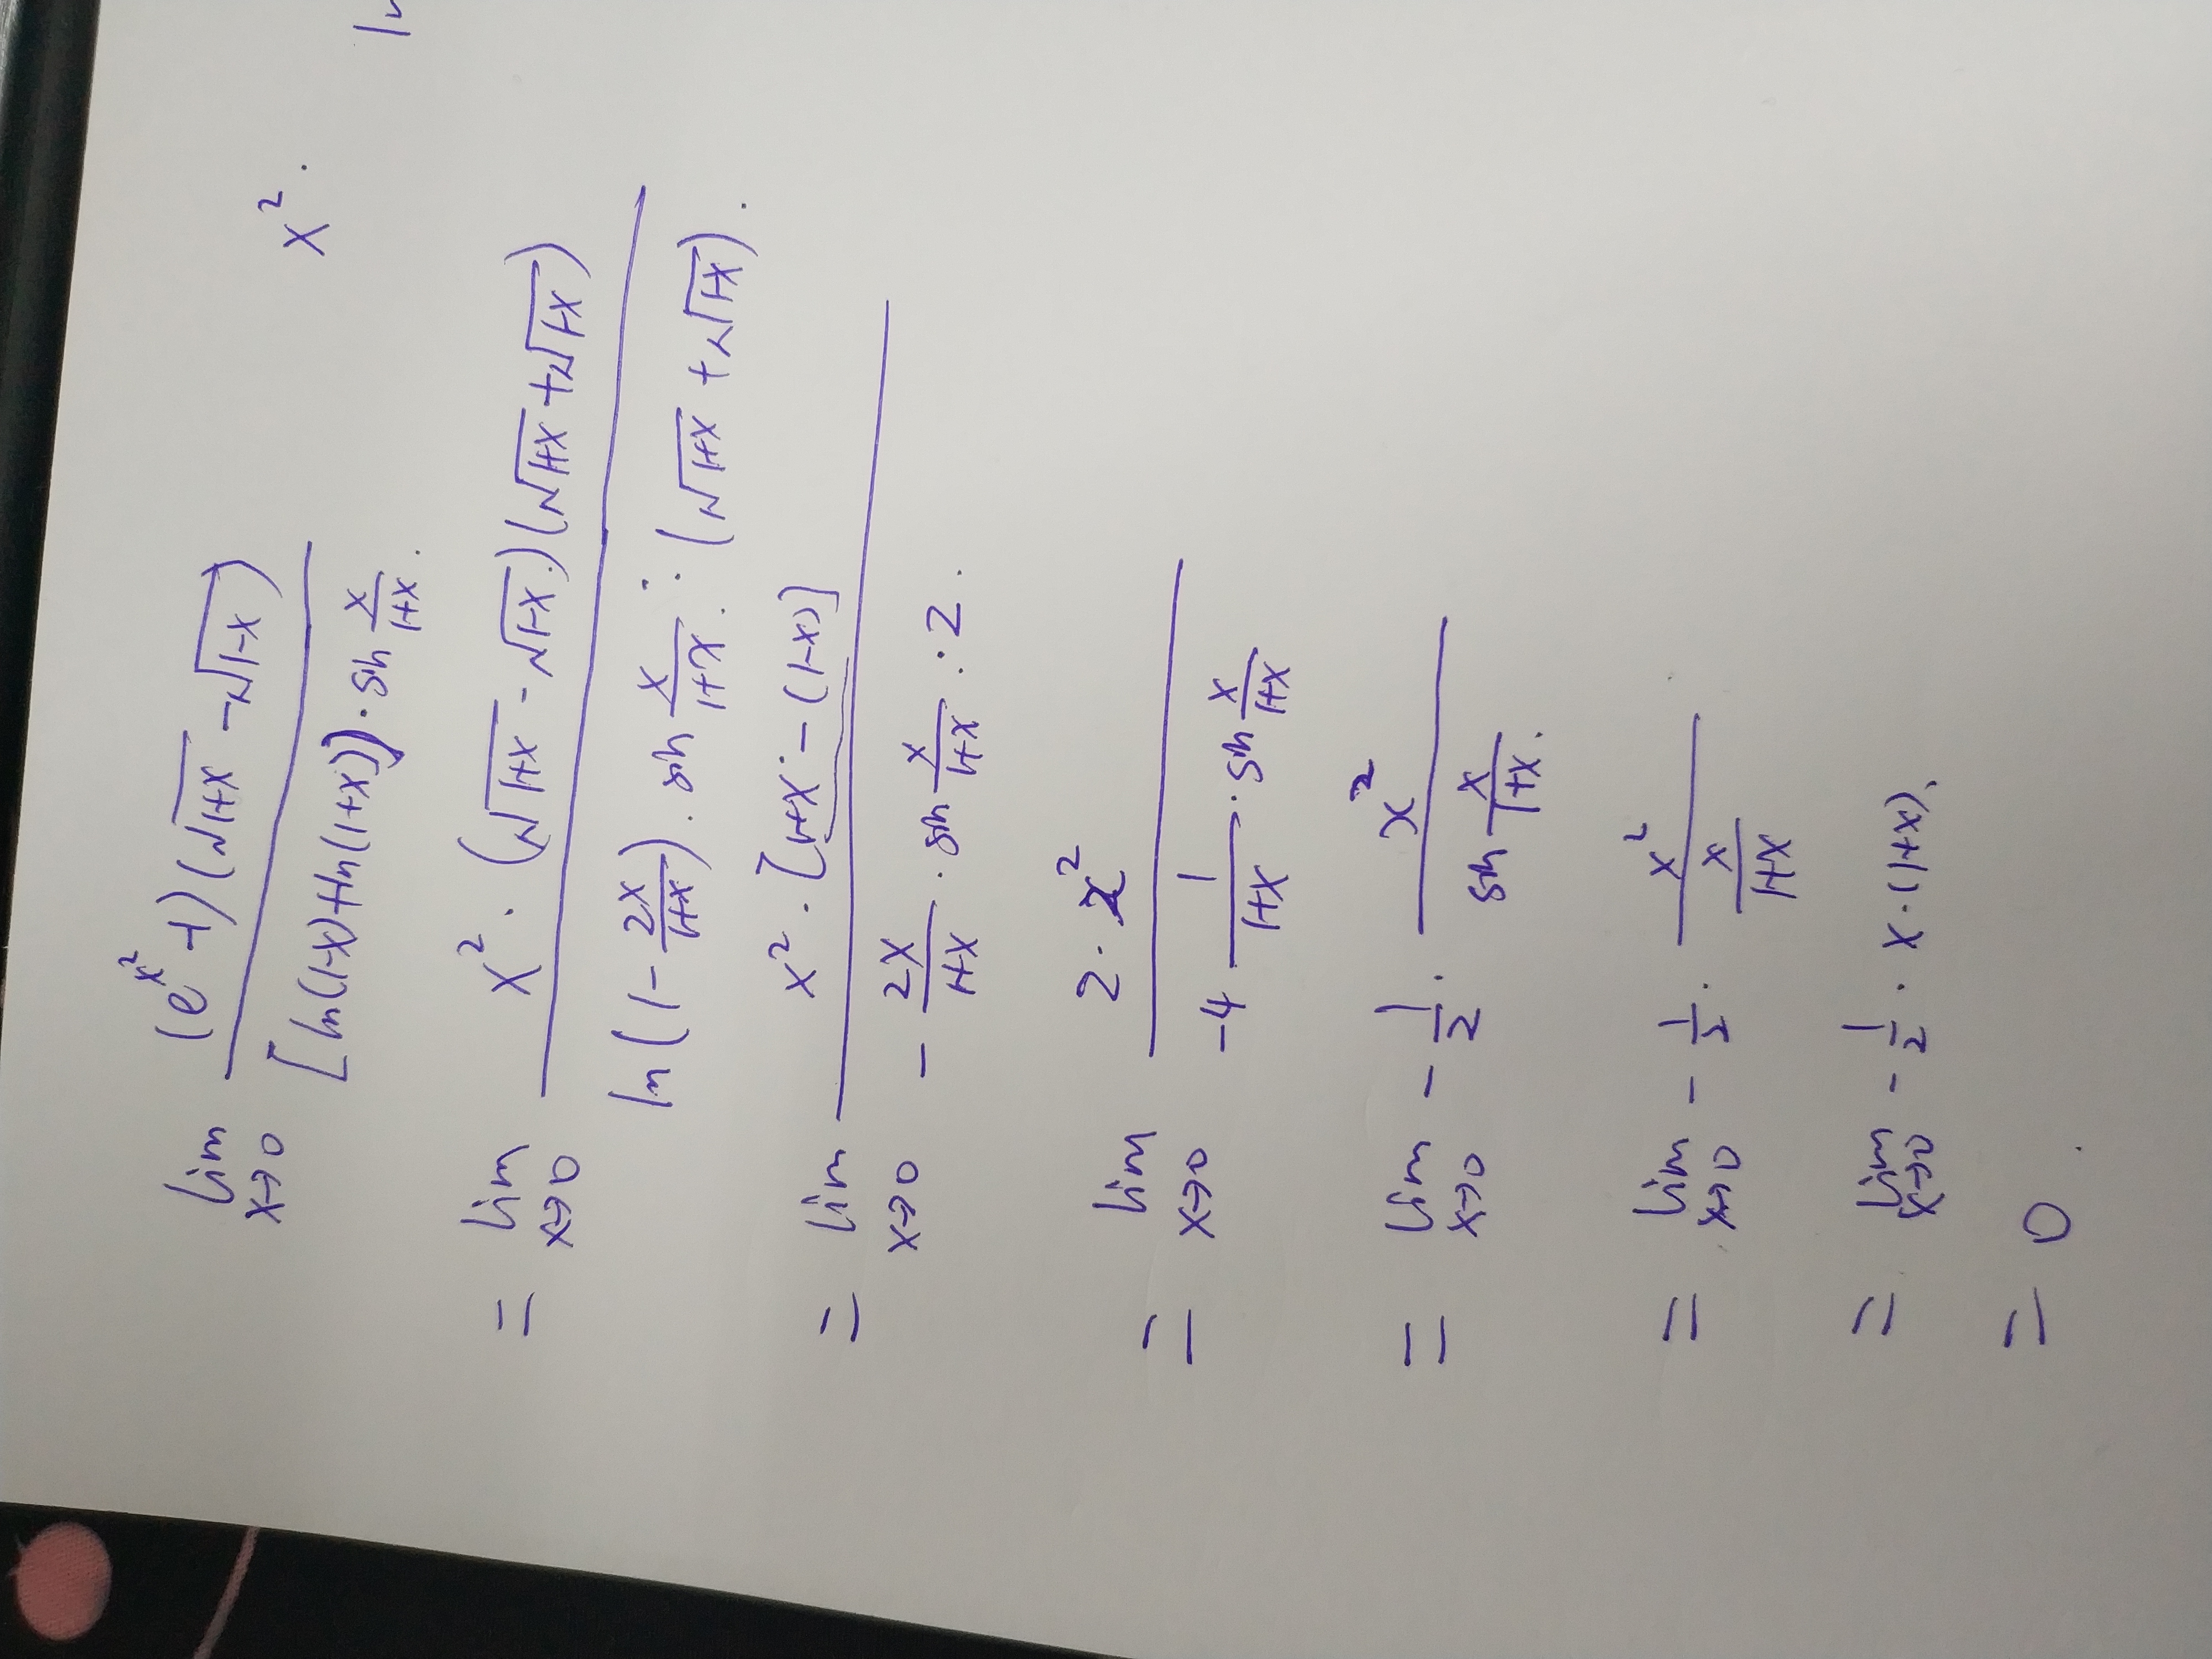 lim x→0 (e^{x^2} -1)(√(1+x) - √(1-x)) / [ln(1-x)+ln(1+x)]·sin x/(1+x).
x^2.
= lim x→0 x^2·(√(1+x) - √(1-x).)(√(1+x) + √(1-x)) / ln(1 - 2x/(1+x))·sin x/(1+x).·(√(1+x) + √(1-x)).
= lim x→0 x^2·[1+x-(1-x)] / - 2x/(1+x)·sin x/(1+x)·2.
= lim x→0 2·x^2 / -4 1/(1+x)·sin x/(1+x)
= lim x→0 - 1/2· x^2 / sin x/(1+x).
= lim x→0 - 1/2· x^2 / x/(1+x)
= lim x→0 - 1/2·x·(1+x).
= 0.